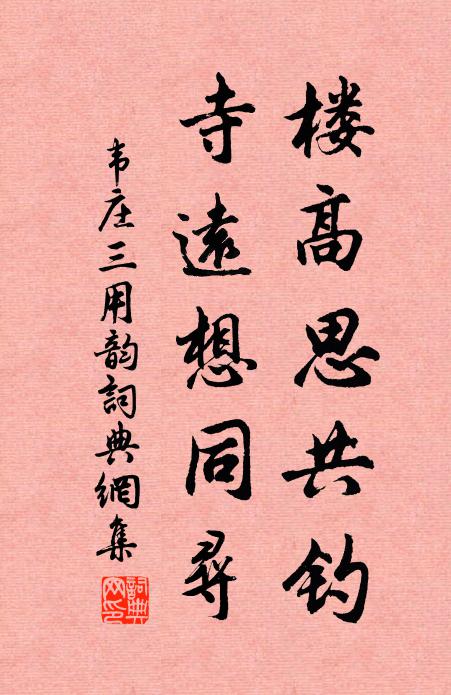 楼高思共钓
寺遠想同尋
韦庄三用韵詞典網集
詞典网印